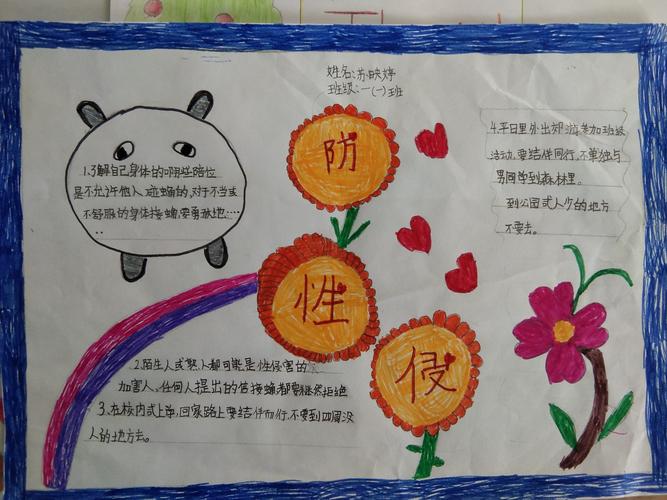 姓名:苏映婷
班级:一(一)班
防
性
侵
1.了解自己身体的哪些部位
是不允许他人碰触的,对于不当或
不舒服的身体接触,要勇敢地……
4.平日里外出郊游参加班级
活动,要结伴同行,不单独与
男同学到森林里。
到公园或人少的地方
不要去。
2.陌生人或熟人都可能是性侵害的
加害人。任何人提出的
接触,都要
然拒绝
3.在校内或上下学,回家路上要结伴而行,不要到四周没
人的地方去。